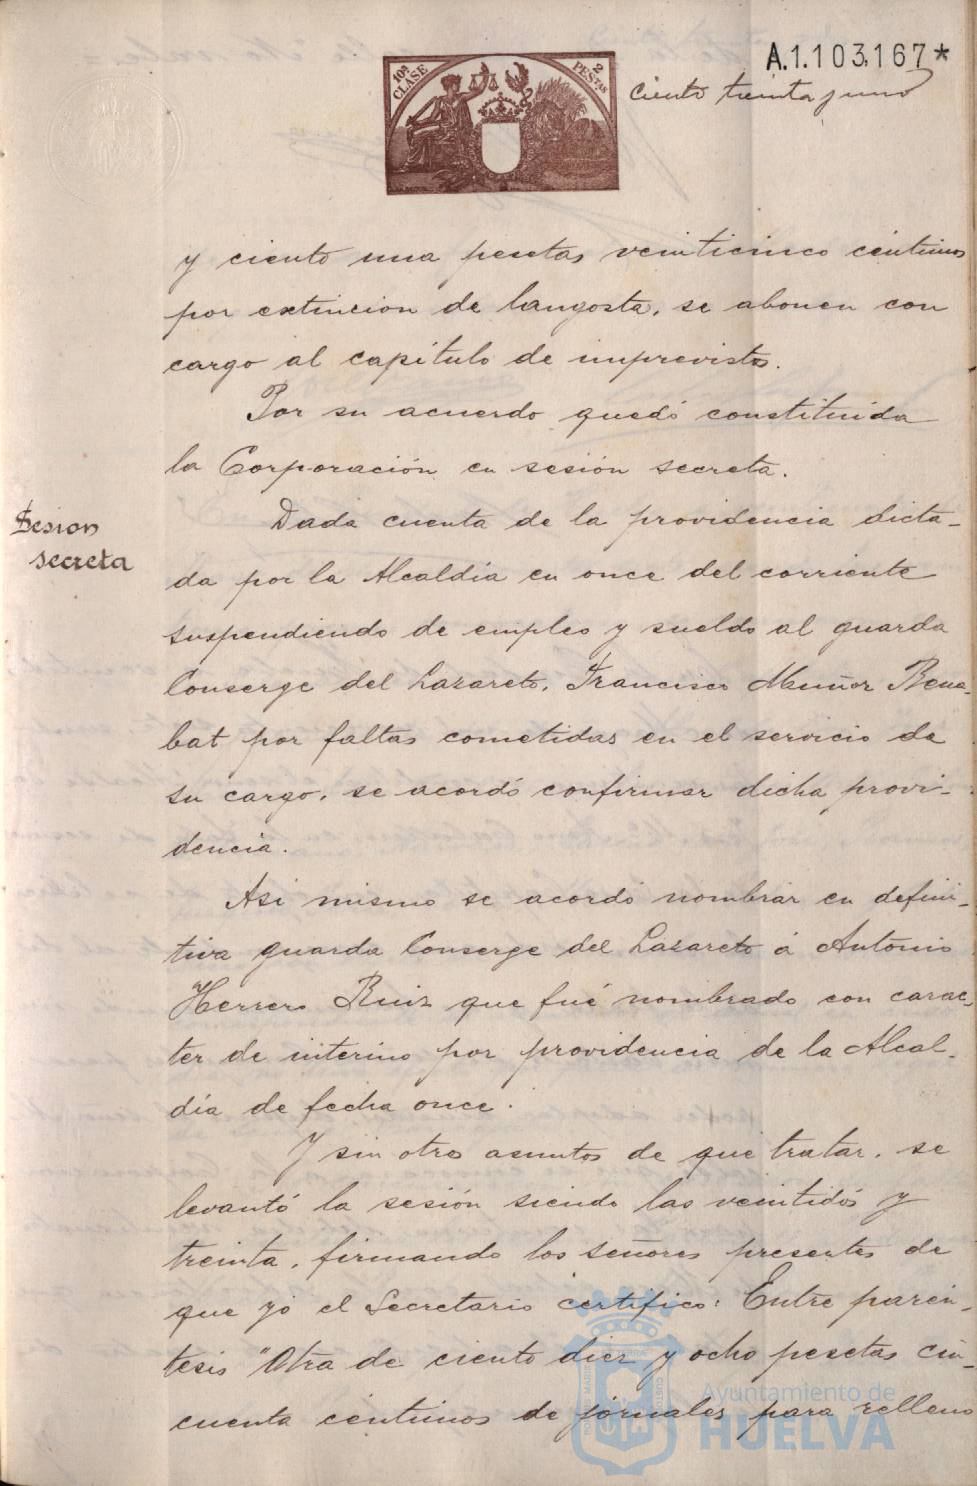 A.1.103,167*
10ª CLASE
2 PESTAS
ciento treinta y uno
y ciento una pesetas veinticinco céntimos
por extincion de langosta, se abonen con
cargo al capítulo de imprevistos.
Por su acuerdo quedó constituida
la Corporación en sesión secreta.
Sesion
secreta
Dada cuenta de la providencia dicta-
da por la Alcaldía en once del corriente
suspendiendo de empleo y sueldo al guarda
Conserge del Lazareto, Francisco Muñoz Bena-
bat por faltas cometidas en el servicio de
su cargo, se acordó confirmar dicha provi-
dencia.
Asi mismo se acordó nombrar en defini-
tiva guarda Conserge del Lazareto á Antonio
Herrero Ruiz que fué nombrado con carac-
ter de interino por providencia de la Alcal-
día de fecha once.
Y sin otros asuntos de que tratar, se
levantó la sesión siendo las veintidós y
treinta, firmando los señores presentes de
que yó el Secretario certifico: Entre parén-
tesis "Otra de ciento diez y ocho pesetas cin-
cuenta céntimos de jornales para relleno
Ayuntamiento de
HUELVA